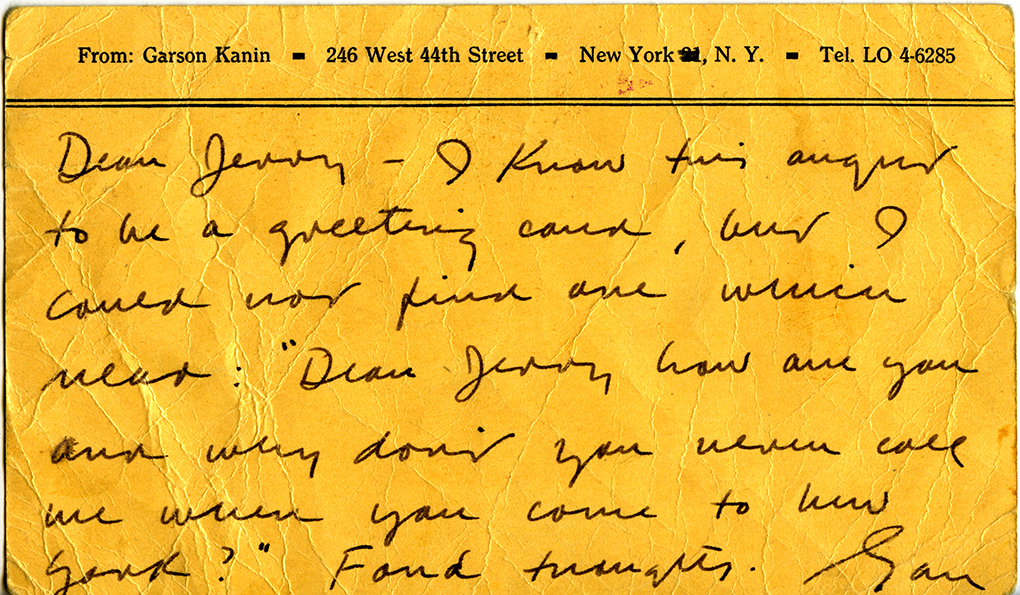 From: Garson Kanin - 246 West 44th Street - New York, N. Y. - Tel. LO 4-6285
Dear Jerry - I know this ought
to be a greeting card, but I
could not find one which
read: "Dear Jerry how are you
and why don't you never call
me when you come to New
York?" Fond thoughts. Gar